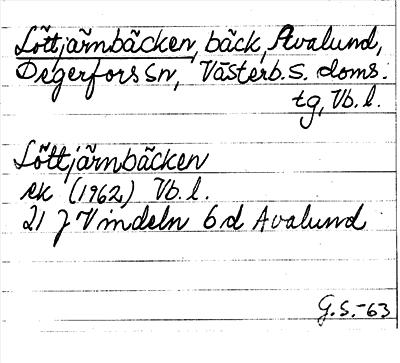 Löttjärnbäcken, bäck, Avalund,
Degerfors sn, Västerb. s. doms.
tg, Vb. l.
Löttjärnbäcken
ek (1962) Vb. l.
21 J Vindeln 6 d Avalund
G.S.-63